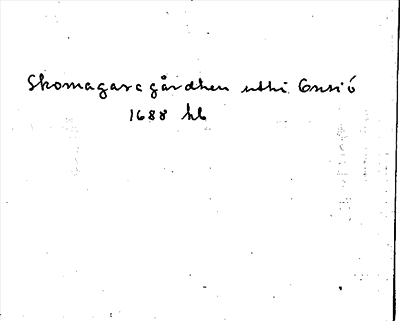 Skomagaregårdhen uthi Ensiö
1688 hb